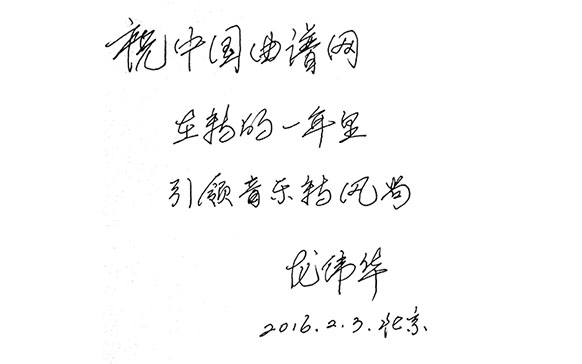 祝中国曲谱网
在新的一年里
引领音乐新风尚
龙伟华
2016.2.3.北京